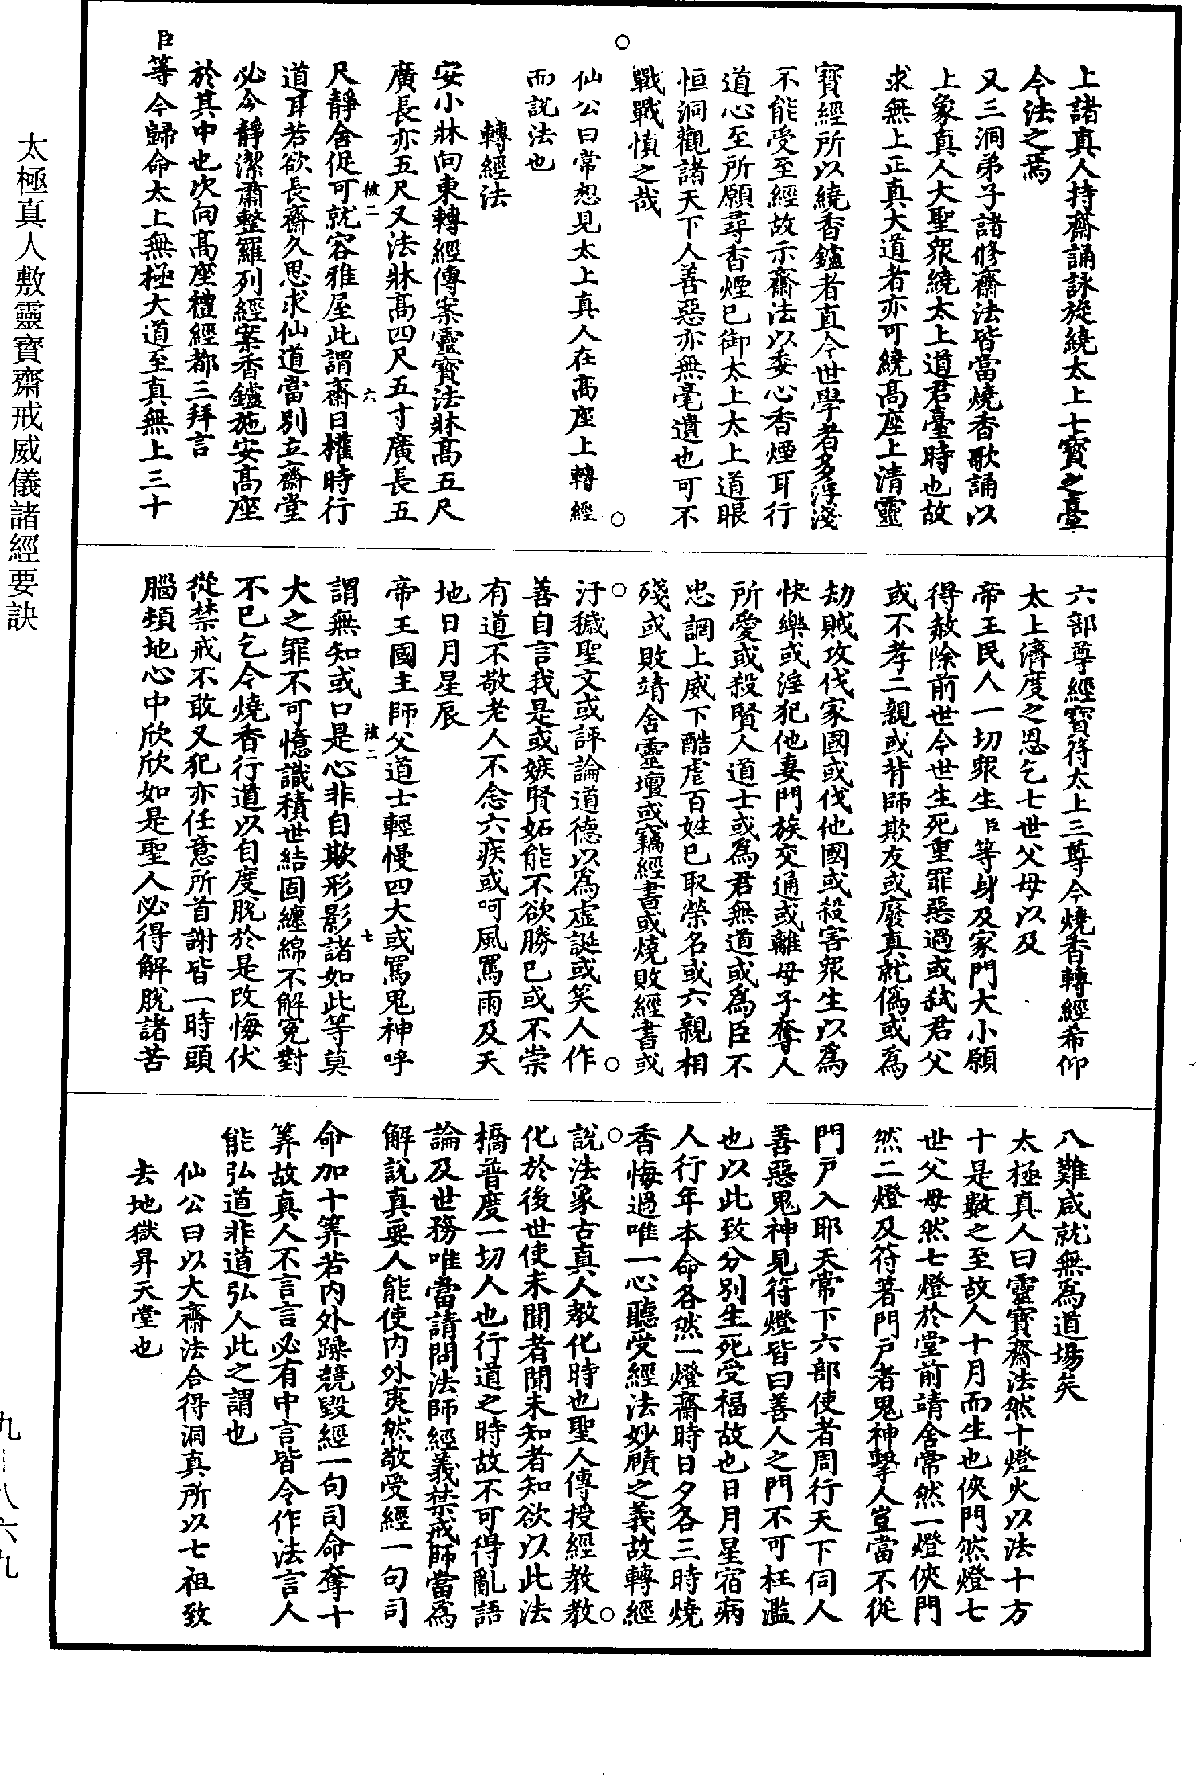 上諸真人持齋誦詠旋繞太上七寶之臺
今法之焉
又三洞弟子諸修齋法皆當燒香歌誦以
上象真人大聖眾繞太上道君臺時也故
求無上正真大道者亦可繞高座上清靈
寶經所以繞香鑪者直今世學者多浮淺
不能受至經故示齋法以委心香煙耳行
道心至所願尋香煙已御太上太上道眼
恒洞觀諸天下人善惡亦無毫遺也可不
戰戰慎之哉
仙公曰常想見太上真人在高座上轉經
而說法也
轉經法
安小牀向東轉經傳案靈寶法牀高五尺
廣長亦五尺又法牀高四尺五寸廣長五
尺靜舍促可就容雅屋此謂齋日權時行
道耳若欲長齋久思求仙道當別立齋堂
必令靜潔肅整羅列經案香鑪施安高座
於其中也次向高座禮經都三拜言
臣等今歸命太上無極大道至真無上三十
六部尊經寶符太上三尊今燒香轉經希仰
太上濟度之恩乞七世父母以及
帝王民人一切眾生臣等身及家門大小願
得赦除前世今世生死重罪惡過或弒君父
或不孝二親或背師欺友或廢真就偽或為
劫賊攻伐家國或伐他國或殺害眾生以為
快樂或淫犯他妻門族交通或離母子奪人
所愛或殺賢人道士或為君無道或為臣不
忠調上威下酷虐百姓已取榮名或六親相
殘或敗靖舍靈壇或竊經書或燒敗經書或
汙穢聖文或評論道德以為虛誕或笑人作
善自言我是或嫉賢妬能不欲勝已或不崇
有道不敬老人不念六疾或呵風罵雨及天
地日月星辰
帝王國主師父道士輕慢四大或罵鬼神呼
謂無知或口是心非自欺形影諸如此等莫
大之罪不可憶識積世結固纏綿不解冤對
不已乞今燒香行道以自度脫於是改悔伏
從禁戒不敢又犯亦任意所首謝皆一時頭
腦頰地心中欣欣如是聖人必得解脫諸苦
八難咸就無為道場矣
太極真人曰靈寶齋法然十燈火以法十方
十是數之至故人十月而生也俠門然燈七
世父母然七燈於堂前靖舍常然一燈俠門
然二燈及符著門戶者鬼神擊人豈當不從
門戶入耶天常下六部使者周行天下伺人
善惡鬼神見符燈皆曰善人之門不可枉濫
也以此致分別生死受福故也日月星宿病
人行年本命各然一燈齋時日夕各三時燒
香悔過唯一心聽受經法妙賾之義故轉經
說法象古真人教化時也聖人傳授經教教
化於後世使未聞者聞未知者知欲以此法
橋普度一切人也行道之時故不可得亂語
論及世務唯當請問法師經義禁戒師當為
解說真要人能使內外夷然敬受經一句司
命加十筭若內外躁競毀經一句司命奪十
筭故真人不言言必有中言皆令作法言人
能弘道非道弘人此之謂也
仙公曰以大齋法合得洞真所以七祖致
去地獄昇天堂也
太極真人敷靈寶齋戒威儀諸經要訣